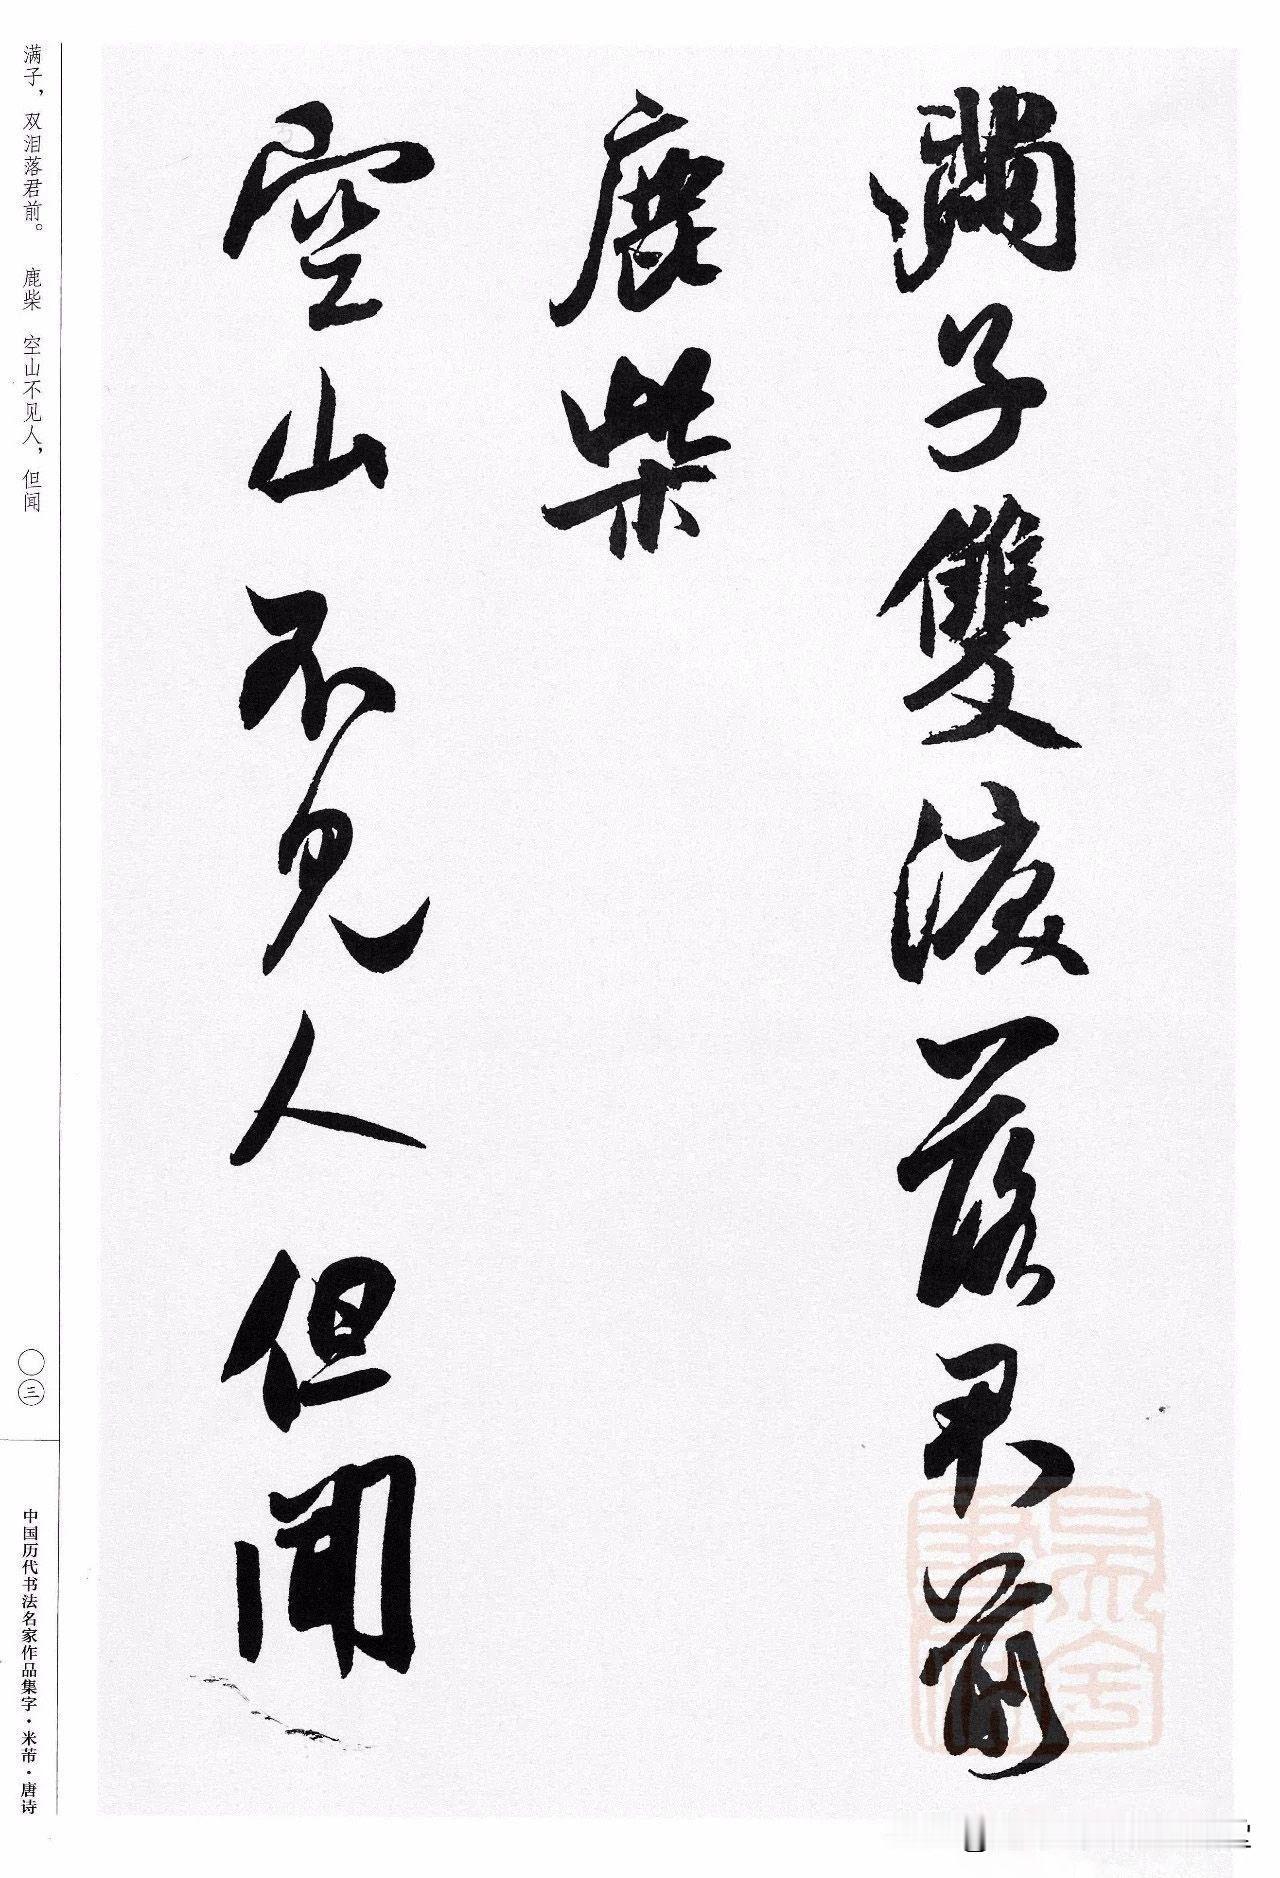 滿子雙淚落君前
鹿柴
空山不見人但聞
满子，双泪落君前。 鹿柴 空山不见人，但闻
〇三
中国历代书法名家作品集字·米芾·唐诗